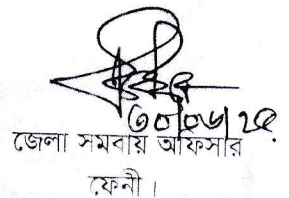 ৩০/০৬/২৫
জেলা সমবায় অফিসার
ফেনী।